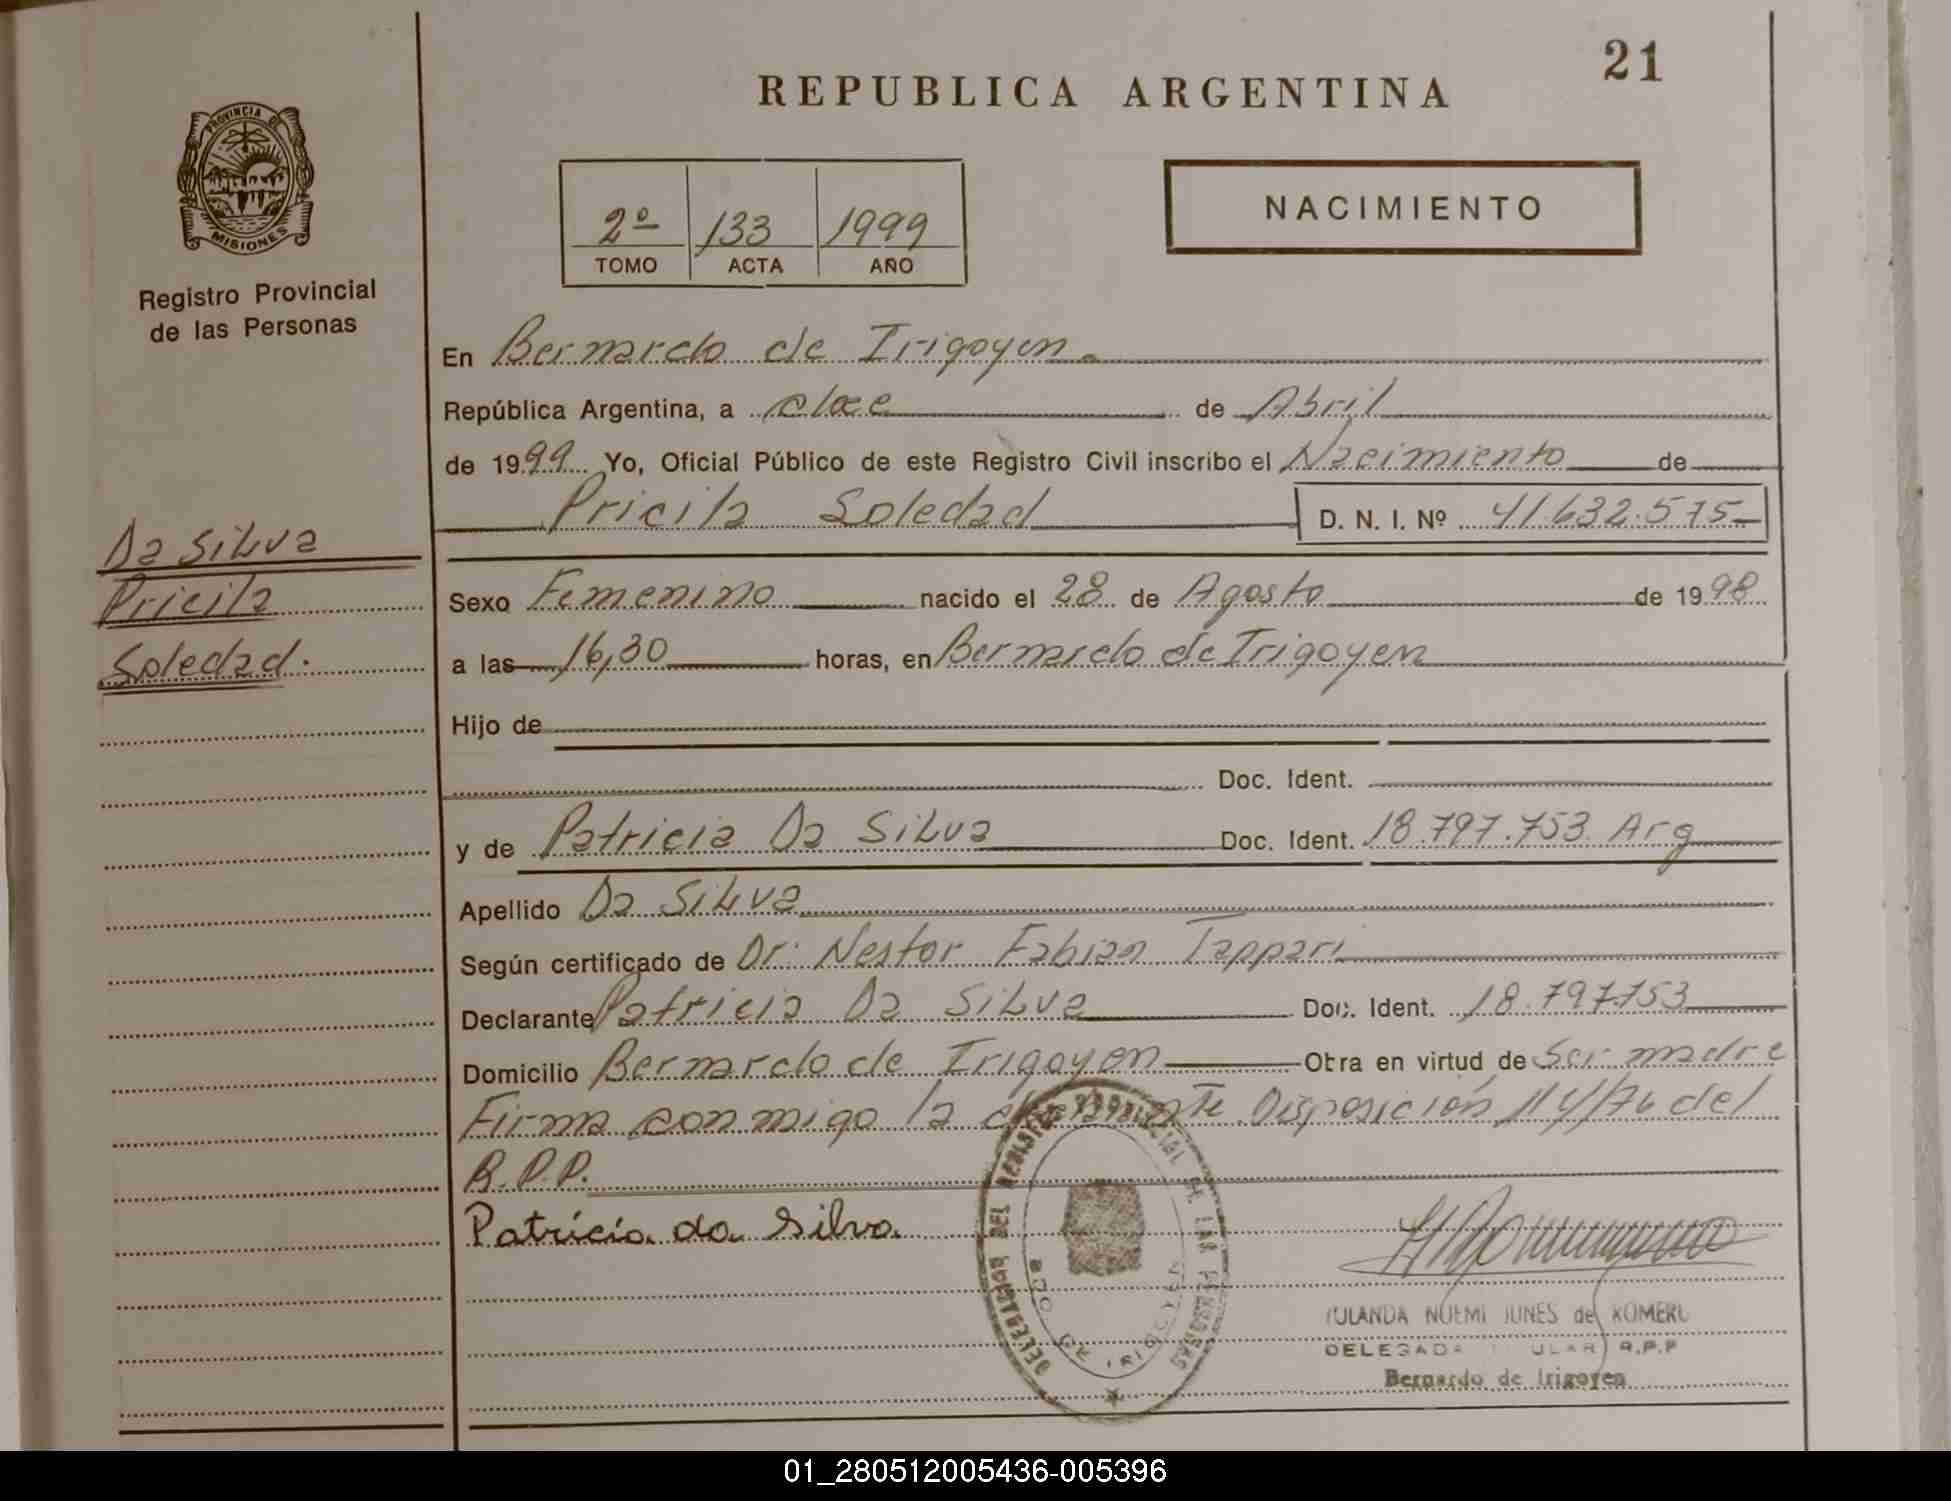 21
REPUBLICA ARGENTINA
PROVINCIA DE
MISIONES
Registro Provincial
de las Personas
2º 133 1999
TOMO ACTA AÑO
NACIMIENTO
En Bernardo de Irigoyen.
República Argentina, a doce de Abril
de 1999 Yo, Oficial Público de este Registro Civil inscribo el Nacimiento de
Pricila Soledad D. N. I. Nº 41.632.575
Da Silva
Pricila
Soledad.
Sexo Femenino nacido el 28 de Agosto de 1998
a las 16,30 horas, en Bernardo de Irigoyen
Hijo de
Doc. Ident.
y de Patricia Da Silva Doc. Ident. 18.797.753 Arg
Apellido Da Silva
Según certificado de Dr. Nestor Fabian Tappari
Declarante Patricia Da Silva Doc. Ident. 18.797.753
Domicilio Bernardo de Irigoyen Obra en virtud de Ser madre
Firma conmigo la Disposición 114/76 del
R.P.P.
Patricia da Silva.
DEL REGISTRO PROVINCIAL DE LAS PERSONAS
BDO DE IRIGOYEN
NOEMI de ROMERO
DELEGADA R.P.P
Bernardo de Irigoyen
01_280512005436-005396